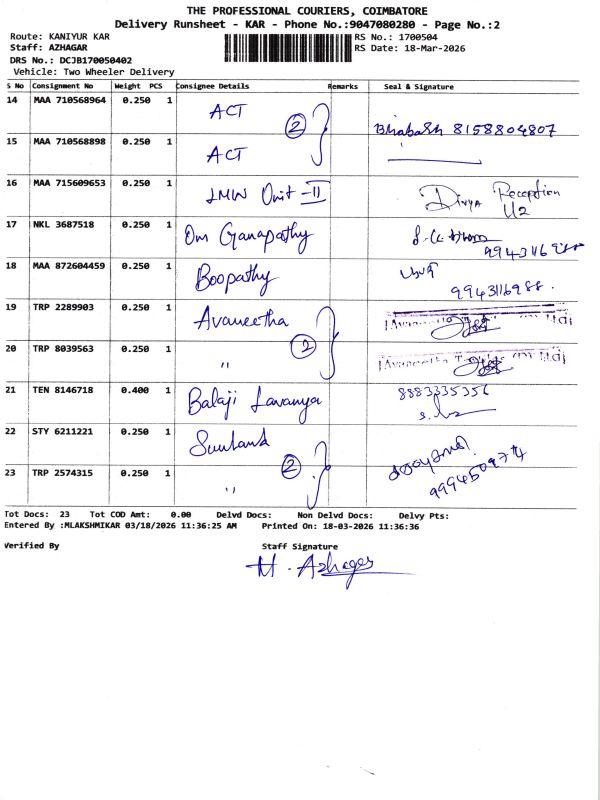 THE PROFESSIONAL COURIERS, COIMBATORE
Delivery Runsheet - KAR - Phone No.:9047080280 - Page No.:2
Route: KANIYUR KAR
RS No.: 1700504
Staff: AZHAGAR
RS Date: 18-Mar-2026
DRS No.: DCJB170050402
Vehicle: Two Wheeler Delivery
S No Consignment No Weight PCS Consignee Details Remarks Seal & Signature
14 MAA 710568964 0.250 1 ACT
2 Bhabash 8158804807
15 MAA 710568898 0.250 1 ACT
16 MAA 715609653 0.250 1 LMW Unit-II Divya Reception
U2
17 NKL 3687518 0.250 1 Om Ganapathy
18 MAA 872604459 0.250 1 Boopathy
9943116988.
19 TRP 2289903 0.250 1 Avaneetha
2
20 TRP 8039563 0.250 1 "
21 TEN 8146718 0.400 1 Balaji Lavanya 8883335356
22 STY 6211221 0.250 1
2
23 TRP 2574315 0.250 1 "
Tot Docs: 23 Tot COD Amt: 0.00 Delvd Docs: Non Delvd Docs: Delvy Pts:
Entered By :MLAKSHMIKAR 03/18/2026 11:36:25 AM Printed On: 18-03-2026 11:36:36
Verified By Staff Signature
H. Azhagar